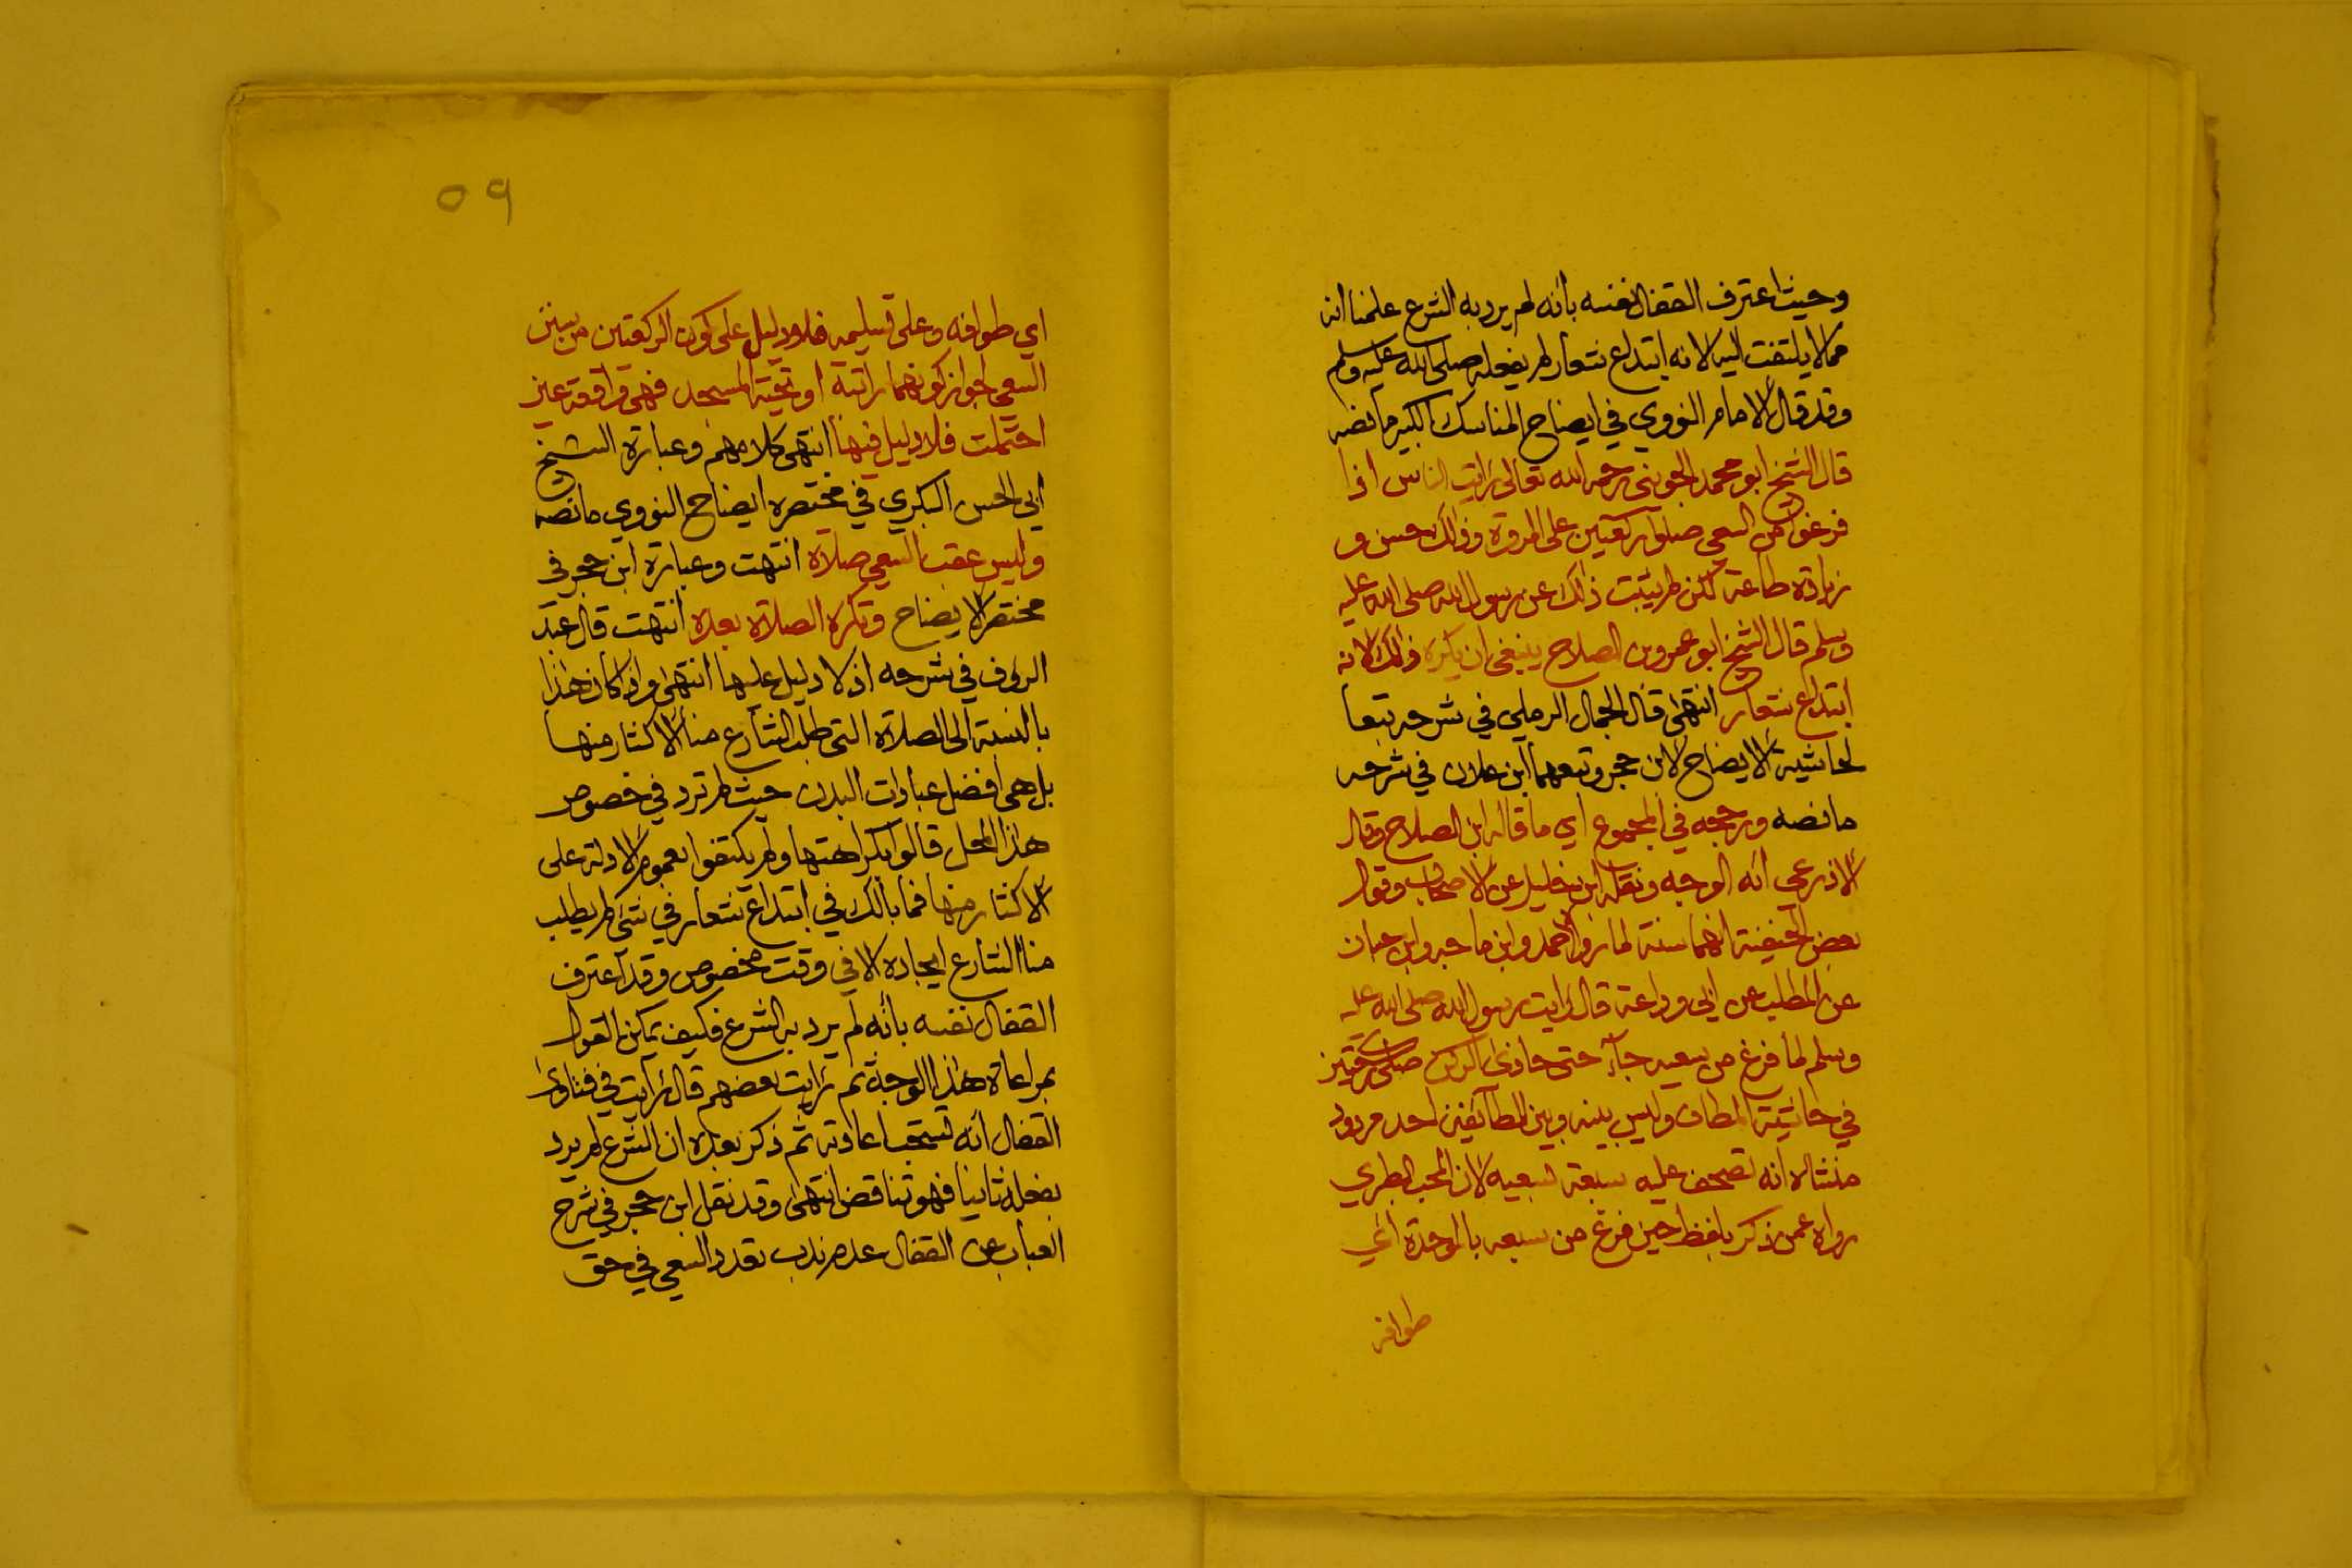 وحيث اعترف القفال نفسه بأنه لم يرد به الشرع علمنا انه
مما لا يلتفت اليه لانه ابتداع شعار لم يفعله صلى الله عليه وسلم
وقد قال الامام النووي في ايضاح المناسك الكبير ما نصه
قال الشيخ ابو محمد الجويني رحمه الله تعالى رايت الناس اذا
فرغوا من السعي صلوا ركعتين على المروة وذلك حسن و
زيادة طاعة لكن لم يثبت ذلك عن رسول الله صلى الله عليه
وسلم قال الشيخ ابو عمرو بن الصلاح ينبغي ان يكره ذلك لانه
ابتداع شعار انتهى قال الجمال الرملي في شرحه تبعا
لحاشية الايضاح لابن حجر وتبعهما ابن علان في شرحه
ما نصه ورجحه في المجموع اي ما قاله ابن الصلاح وقال
الاذرعي انه الوجه ونقله ابن خليل عن الاصحاب وقول
بعض الحنفية انهما سنة لما روا احمد وابن ماجه وابن حبان
عن المطلب عن ابي وداعة قال رايت رسول الله صلى الله عليه
وسلم لما فرغ من سعيه جاء حتى حاذى الركن صلى ركعتين
في حاشية المطاف وليس بينه وبين الطائفين احد مردود
منشاه انه تصحف عليه سبعة بسعيه لان المحب الطبري
رواه عمن ذكر بلفظ حين فرغ من سبعه بالموحدة اي
طوافه
٥٩
اي طوافه وعلى تسليمه فلا دليل على كون الركعتين من سنن
السعي لجواز كونهما راتبة او تحية المسجد فهي واقعة عين
احتملت فلا دليل فيها انتهى كلامهم وعبارة الشيخ
ابي الحسن البكري في مختصره ايضاح النووي ما نصه
وليس عقب السعي صلاة انتهت وعبارة ابن حجر في
مختصر الايضاح وتكره الصلاة بعده انتهت قال عبد
الرؤف في شرحه اذ لا دليل عليها انتهى واذ كان هذا
بالنسبة الى الصلاة التي طلب الشارع منا الاكثار منها
بل هي افضل عبادات البدن حيث لم ترد في خصوص
هذا المحل قالوا بكراهتها ولم يكتفوا بعموم الادلة على
الاكثار منها فما بالك في ابتداع شعار في شي لم يطلب
منا الشارع ايجاده الا في وقت مخصوص وقد اعترف
القفال نفسه بأنه لم يرد به الشرع فكيف يمكن القول
بمراعاة هذا الوجه ثم رايت بعضهم قال رايت في فتاوى
القفال أنه تستحب اعادته ثم ذكر بعده ان الشرع لم يرد
بفعله ثانيا فهو تناقض انتهى وقد نقل ابن حجر في شرح
العباب عن القفال عدم ندب تعدد السعي في حق